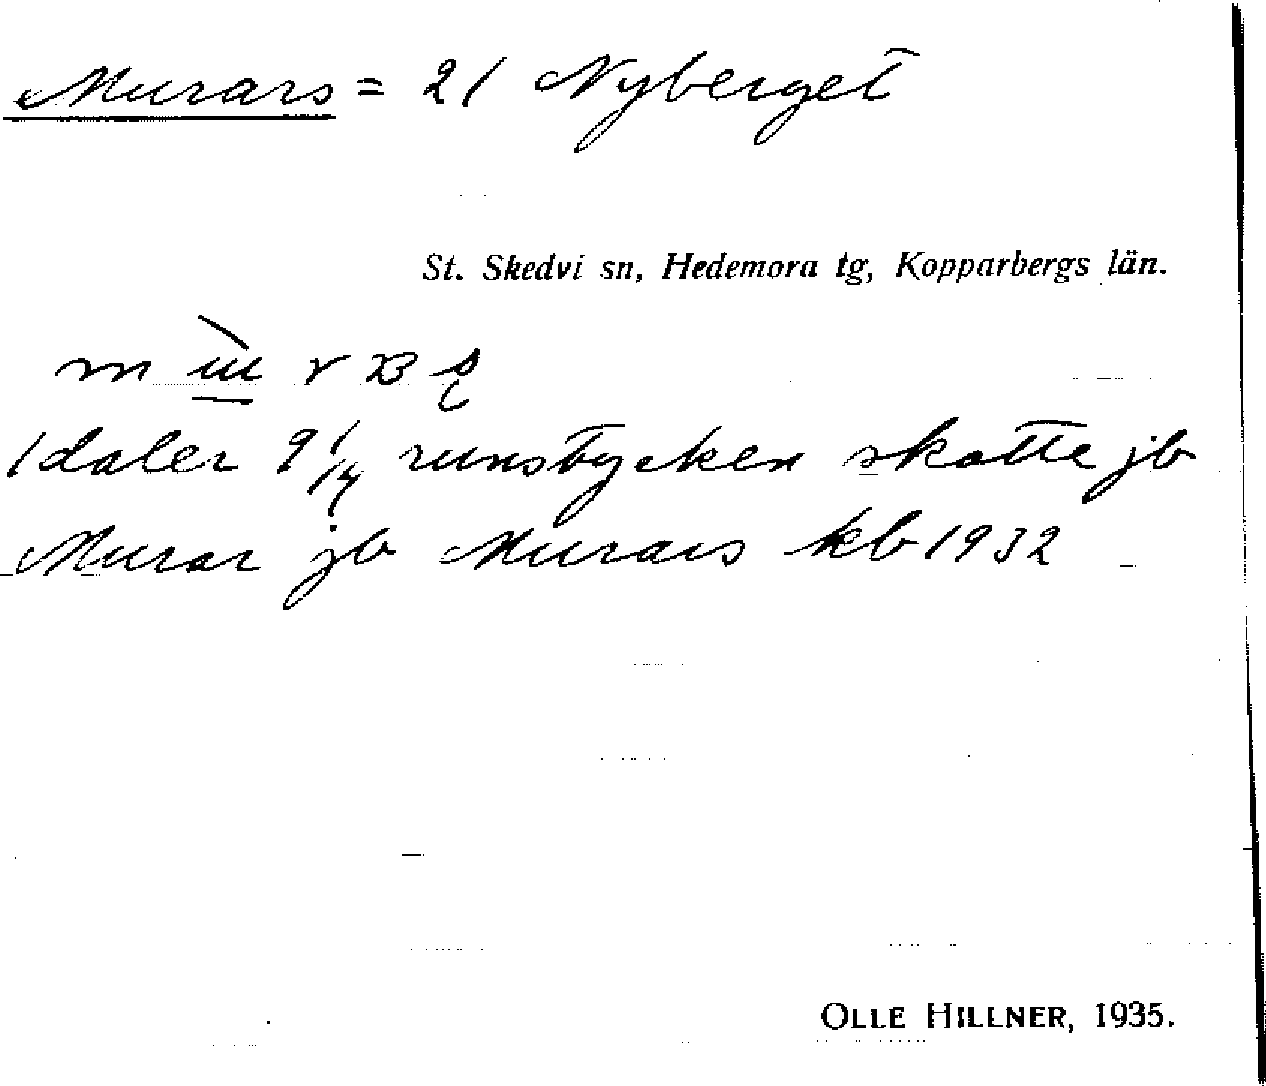 Murars = 21 Nyberget
St. Skedvi sn, Hedemora tg, Kopparbergs län.
1 daler 9 1/4 runstycken skatte jb
Murar jb Murars kb 1932
OLLE HILLNER, 1935.